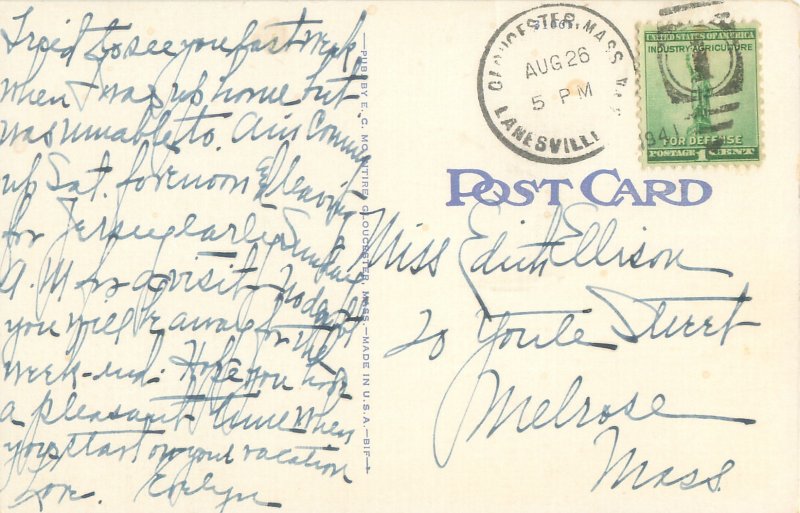 Tried to see you last week
when I was up home but
was unable to. Am coming
up Sat. forenoon & leaving
for Jersey early Sunday
A.M. for a visit. No doubt
you will be away for the
week-end. Hope you have
a pleasant time when
you start on your vacation
Love. Evelyn
PUB. BY E. C. MC INTIRE, GLOUCESTER, MASS.—MADE IN U.S.A.—BIF—
GLOUCESTER, MASS.
AUG 26
5 PM
LANESVILLE
1941
UNITED STATES OF AMERICA
INDUSTRY AGRICULTURE
FOR DEFENSE
POSTAGE 1 CENT
POST CARD
Miss Edith Ellison
20 Youle Street
Melrose
Mass.